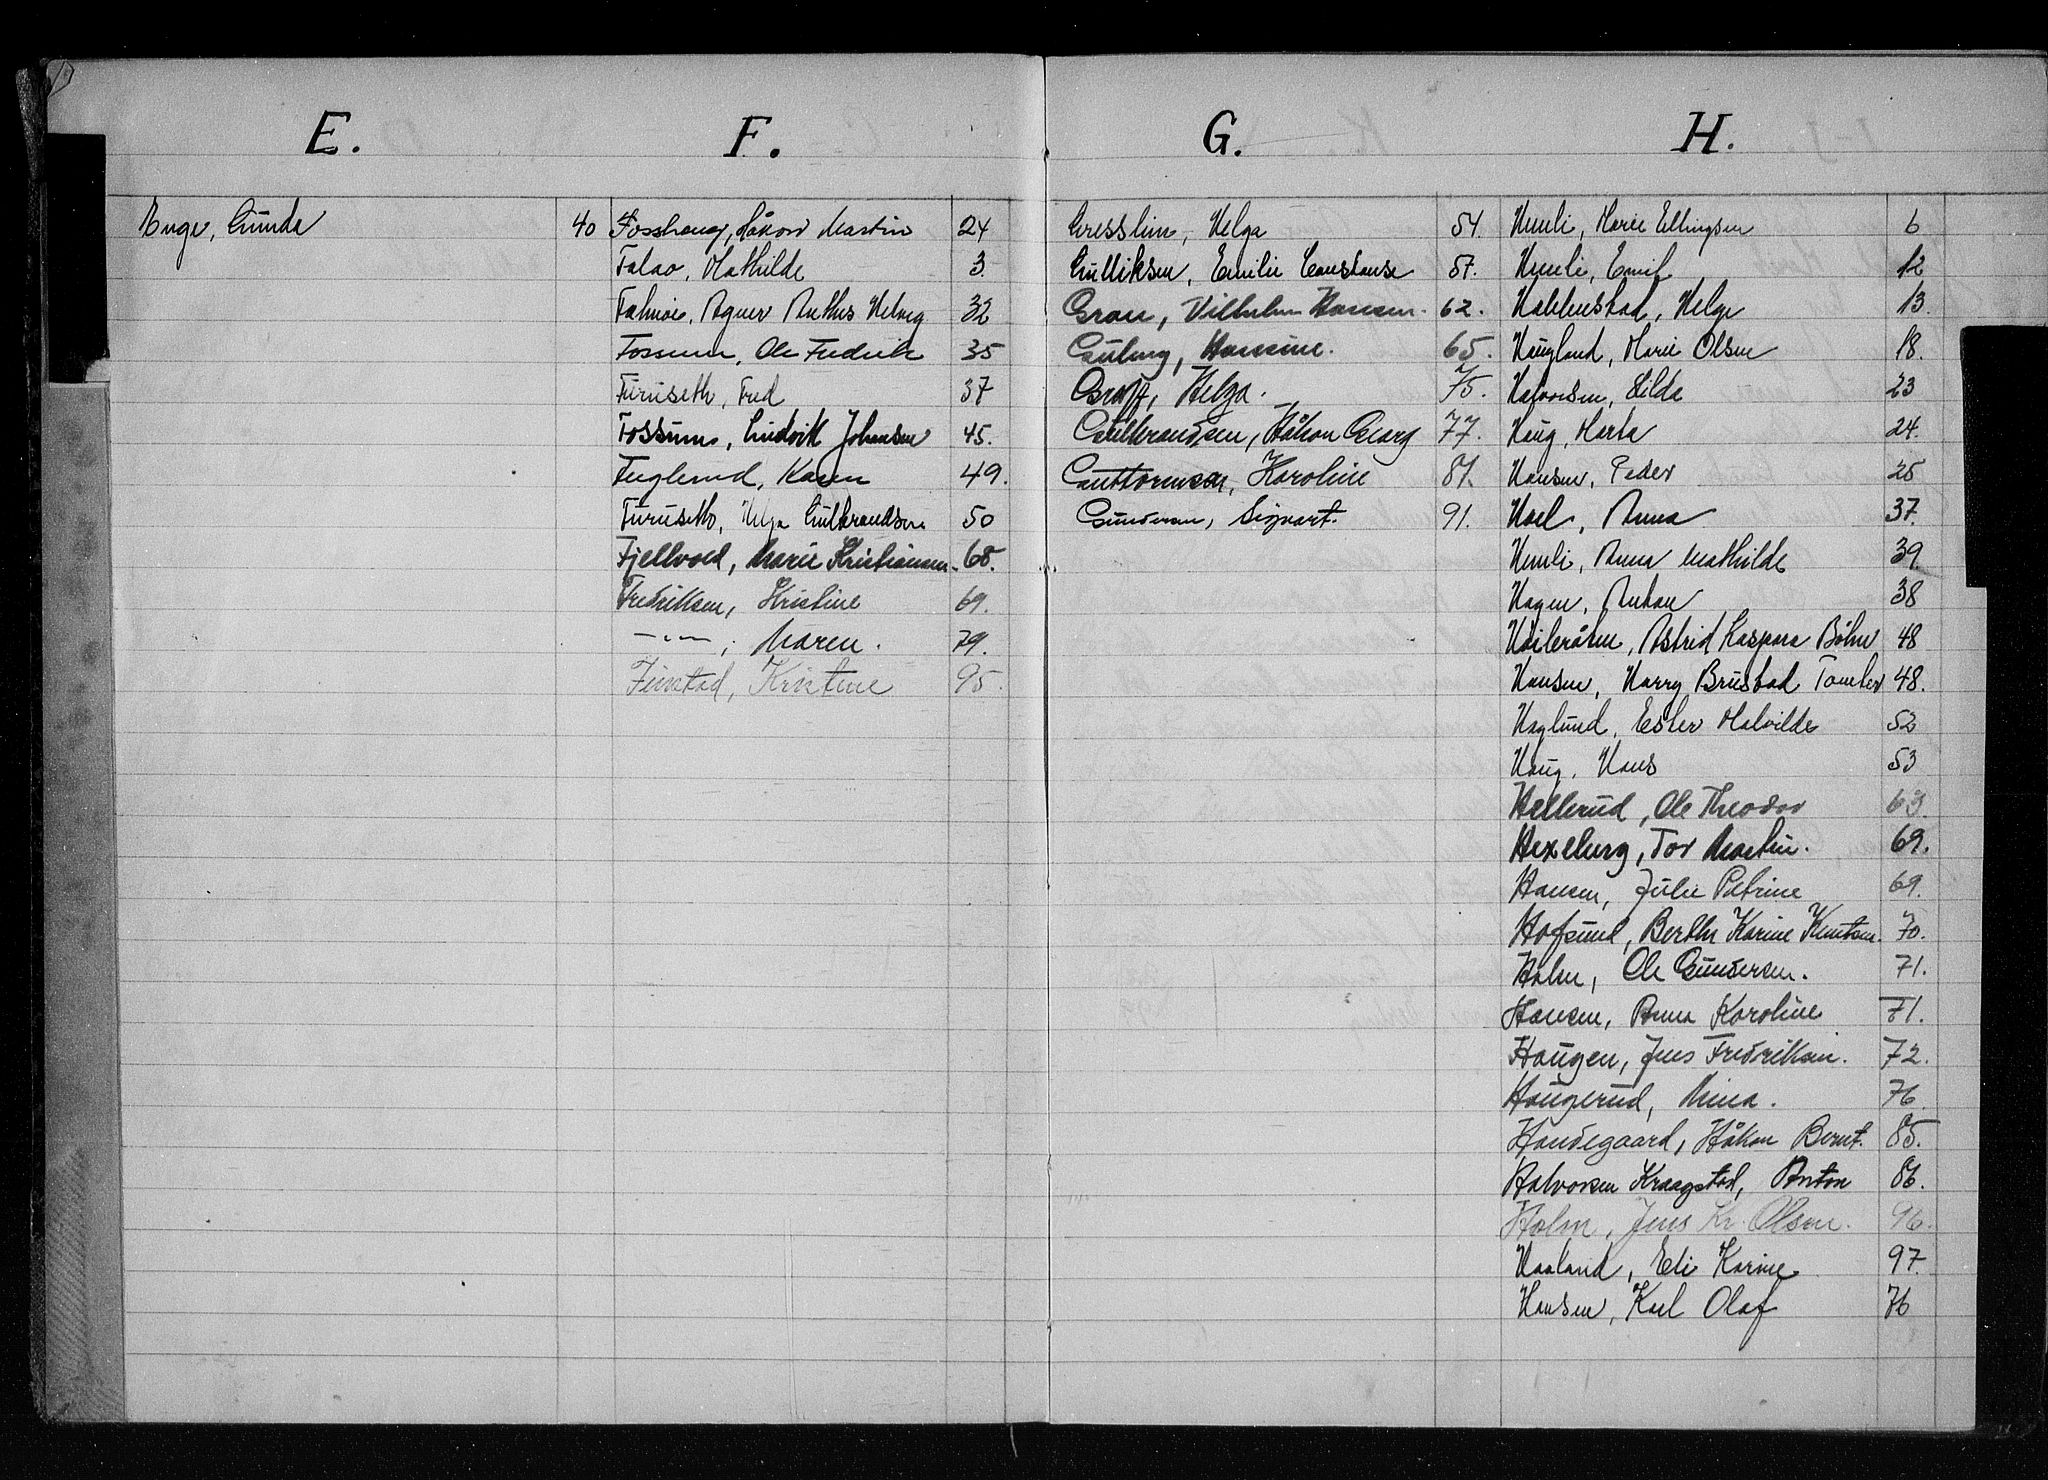 E.
Enge, Gunda 40
F.
Fosshaug, Håkon Martin 24
Falao, Mathilde 3
Agner 32
Fossum, Ole Fredrik 35
Furuseth, Fred 37
Fossum, Ludvik Johansen 45.
Fuglerud, Karen 49.
Furuseth, Helga Gulbrandsen 50
Fjellvold, Marie Kristiansen 68.
Fredriksen, Kristine 69.
—"— , Maren. 79.
Finstad, Kristine 95.
G.
Gresslim, Helga 54.
Gulliksen, Emilie Constanse 57.
Grau, Vilhelm Hansen. 62.
Hansine. 65.
Graff, Helga. 75.
Gulbrandsen, Håkon Georg 77.
Guttormsen, Karoline 81.
Gundersen, Sigvart. 91.
H.
Hemli, Marie Ellingsen 6
Hemli, Emil 12
Habbestad, Helge 13.
Haugland, Marie Olsen 18.
Halvorsen, Hilda 23
Haug, Marta 24.
Hansen, Peder 25
Hoel, Anna 37.
Hemli, Anna Mathilde 39.
Hagen, Anton 38
Astrid Kaspara Bøhn 48
Hansen, Harry Brustad Tomter 48.
Haglund, Ester Malvilde 52
Haug, Hans 53
Hellerud, Ole Theodor 63.
Hexeberg, Tor Martin. 69.
Hansen, Julie Petrine 69.
Hofsund, Berthe Karine Knutsen. 70.
Holm, Ole Gundersen. 71.
Hansen, Anna Karoline 71.
Haugen, Jens Fredriksen. 72.
Haugerud, Mina. 76.
Handegaard, Håkon Bernt. 85.
Halvorsen Kraagstad, Anton 86.
Holm, Jens Kr. Olsen. 96.
Haaland, Eli Karine 97.
Hansen, Karl Olaf 76